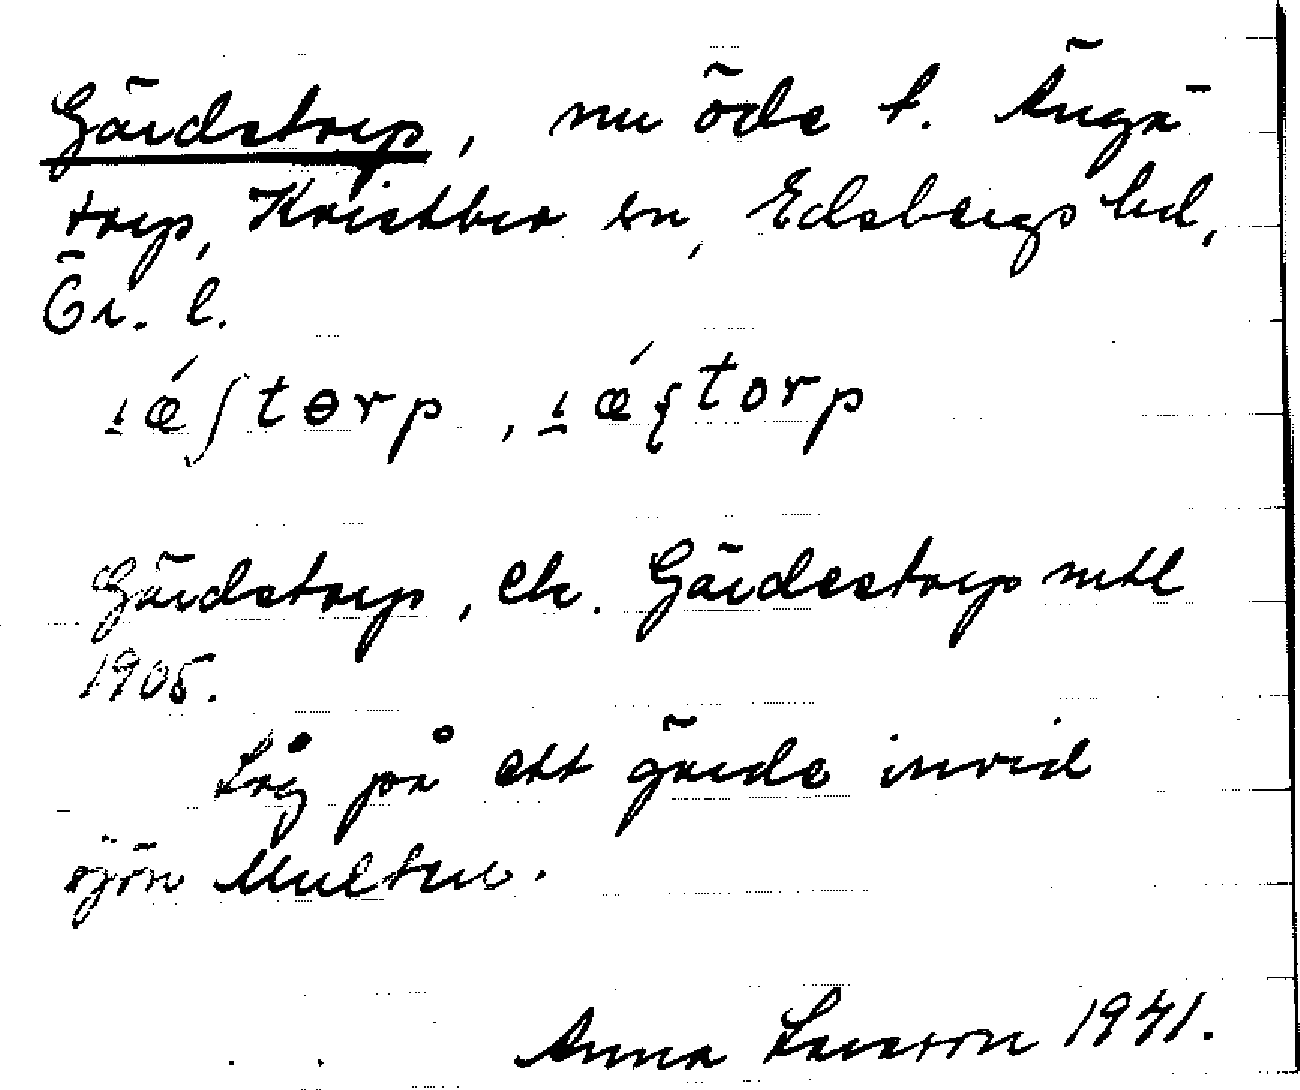 Gärdstorp, nu öde t. Ängä-
torp, Knistbro sn, Edsbergs hd,
Ör. l.
Gärdstorp, ev. Gärdestorp mtl
1905.
Låg på ett gärde invid
sjön Multen.
Anna Larsson 1941.